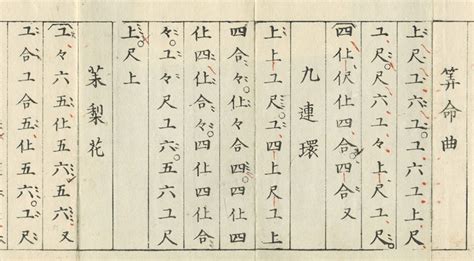 筭命曲
上尺工六工工六上尺
工尺尺六工々上尺工
四仩伬仩四合又
九連環
上上工尺工四上尺工上
四合々仩合四四仩四
仩四仩合々四仩四仩合
工々工々尺工六工尺
上尺上
茉梨花
工々六五仩五六五六又
工合工合五仩五六工尺